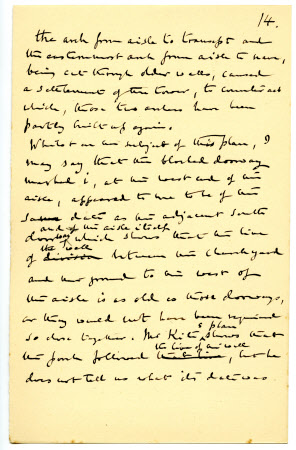 14.
the arch from aisle to transept and
the easternmost arch from aisle to nave,
being cut through older walls, caused
a settlement of the tower, to counteract
which, those two arches have been
partly built up again.
Whilst on the subject of this plan, I
may say that the blocked doorway
marked i, at the west end of the
aisle, appeared to me to be of the
same date as the adjacent south
and of the aisle itself
doorway which shows that the line
the wall
of division between the churchyard
and the ground to the west of
the aisle is as old as those doorways,
or they would not have been required
so close together. Mr Kite's plan shows that
the line of the wall
the path followed that line, but he
does not tell us what its date was.